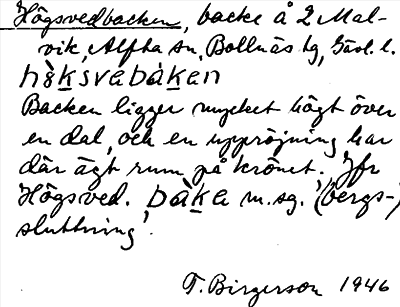 Högsvedbacken, backe å 2 Mal-
vik, Alfta sn, Bollnäs tg, Gävl. l.
hö̀ksvebàken
Backen ligger mycket högt över
en dal, och en uppröjning har
där ägt rum på krönet. Jfr
Högsved. bàke m.sg. '(bergs-)
sluttning'.
T. Birgerson 1946